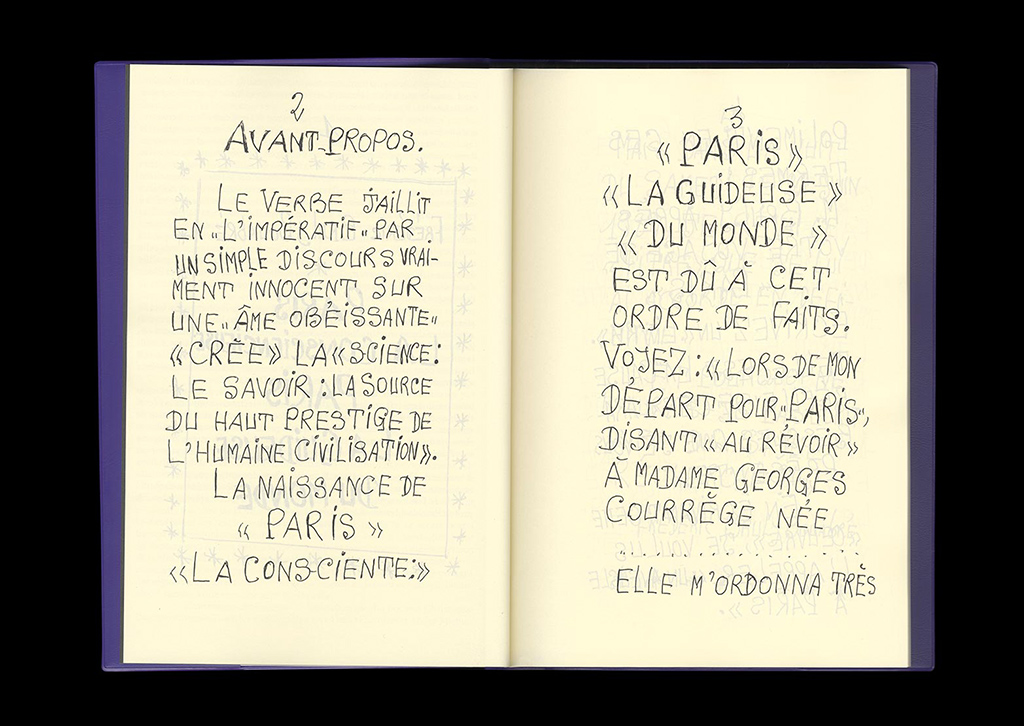 2
AVANT-PROPOS.
LE VERBE JAILLIT
EN "L'IMPÉRATIF" PAR
UN SIMPLE DISCOURS VRAI-
MENT INNOCENT SUR
UNE "ÂME OBÉISSANTE"
«CRÉE» LA «SCIENCE:
LE SAVOIR: LA SOURCE
DU HAUT PRESTIGE DE
L'HUMAINE CIVILISATION».
LA NAISSANCE DE
« PARIS »
«LA CONSCIENTE:»
3
« PARIS »
« LA GUIDEUSE »
« DU MONDE »
EST DÛ À CET
ORDRE DE FAITS.
VOYEZ: «LORS DE MON
DÉPART POUR "PARIS",
DISANT « AU RÉVOIR »
À MADAME GEORGES
COURRÈGE NÉE
....................
ELLE M'ORDONNA TRÈS